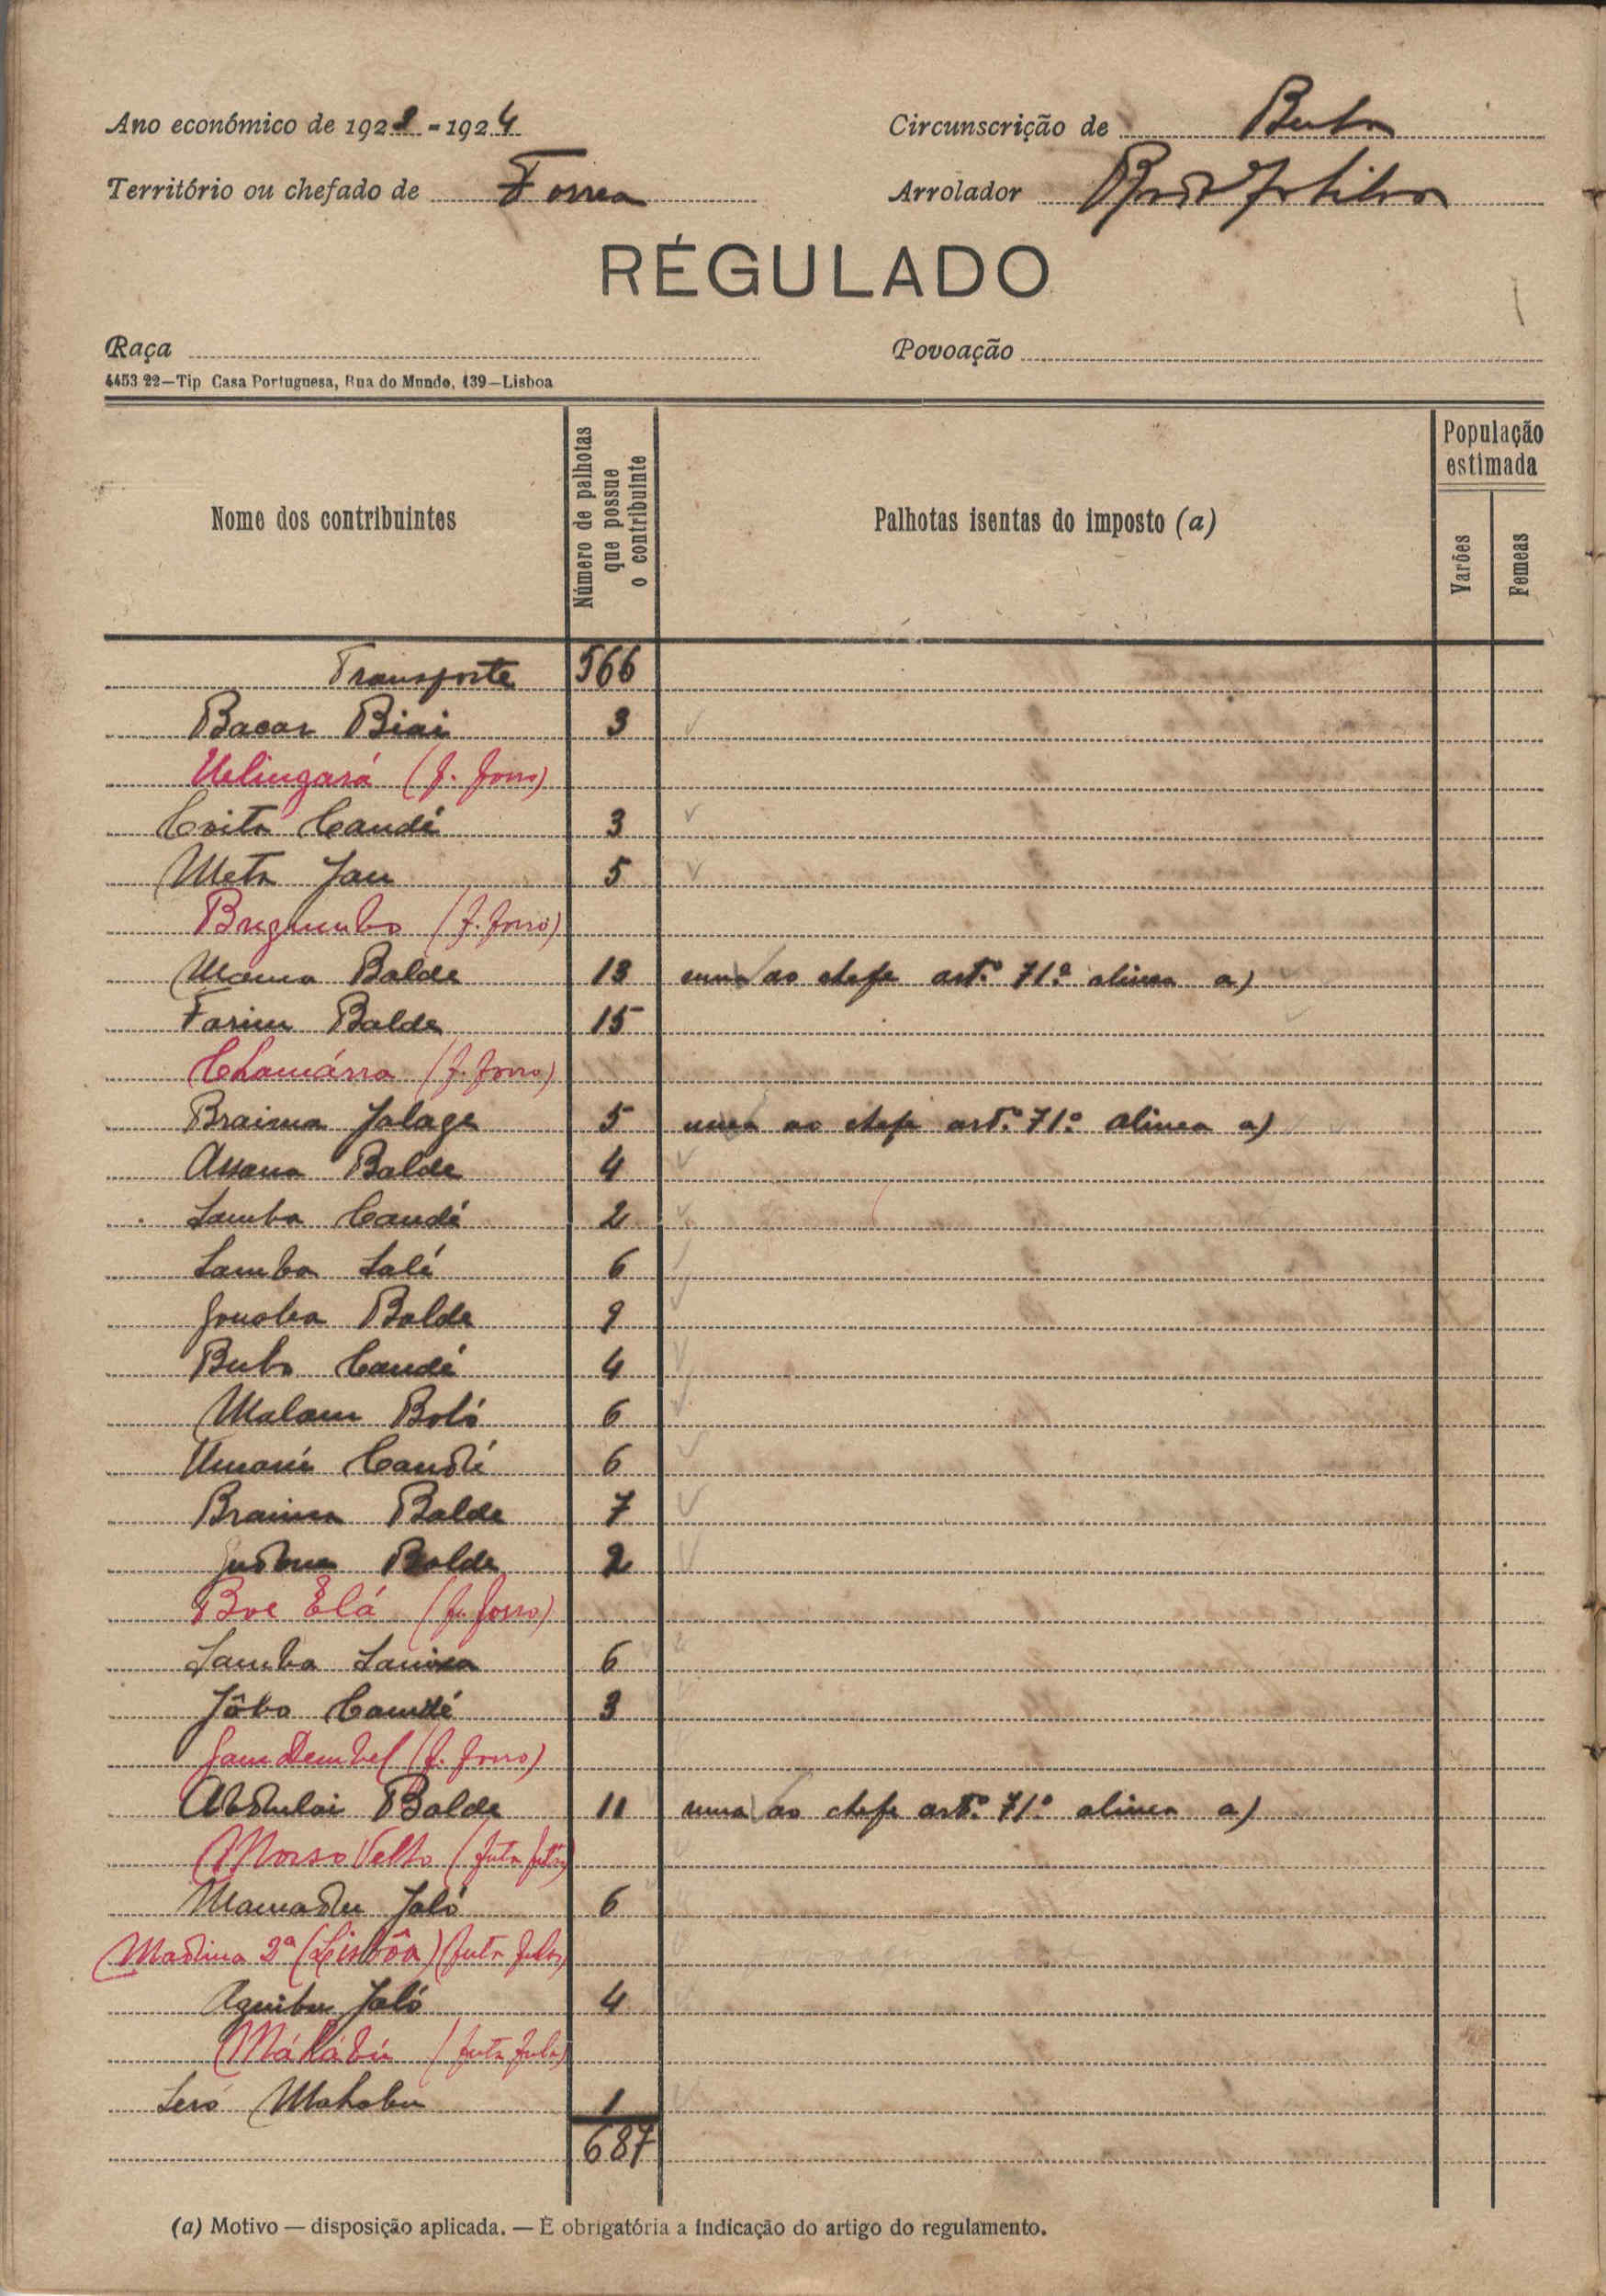 Ano económico de 1923-1924
Circunscrição de Buba
Território ou chefado de Forrea
Arrolador
RÉGULADO
Raça
Povoação
4453 22—Tip Casa Portuguesa, Rua do Mundo, 139—Lisboa
Nome dos contribuintes
Número de palhotas que possue o contribuinte
Palhotas isentas do imposto (a)
População estimada
Varões
Femeas
Transporte 566
Bacar Biai 3
Uelingará (f. forro)
Coita Candé 3
Meta Jau 5
(f. forro)
Mama Balde 13 uma ao chefe artº 71º alinea a)
Farim Balde 15
Chamárra (f. forro)
Braima Jalage 5 uma ao chefe artº 71º alinea a)
Assana Balde 4
Samba Candé 2
Samba Salé 6
Balde 9
Bubo Candé 4
Malam Boló 6
Umarú Candé 6
Braima Balde 7
Balde 2
Boe Elá (f. forro)
Samba 6
Jôbo Camdé 3
Sam Dembel (f. forro)
Abdulai Balde 11 uma ao chefe artº 71º alinea a)
Morso Velho (futa fula)
Mamadu Jaló 6
Madina 2ª (Lisbôa) (futa fula)
Aguibu Jaló 4
Máhábú (futa fula)
Seró Mahabu 1
687
(a) Motivo — disposição aplicada. — É obrigatória a indicação do artigo do regulamento.